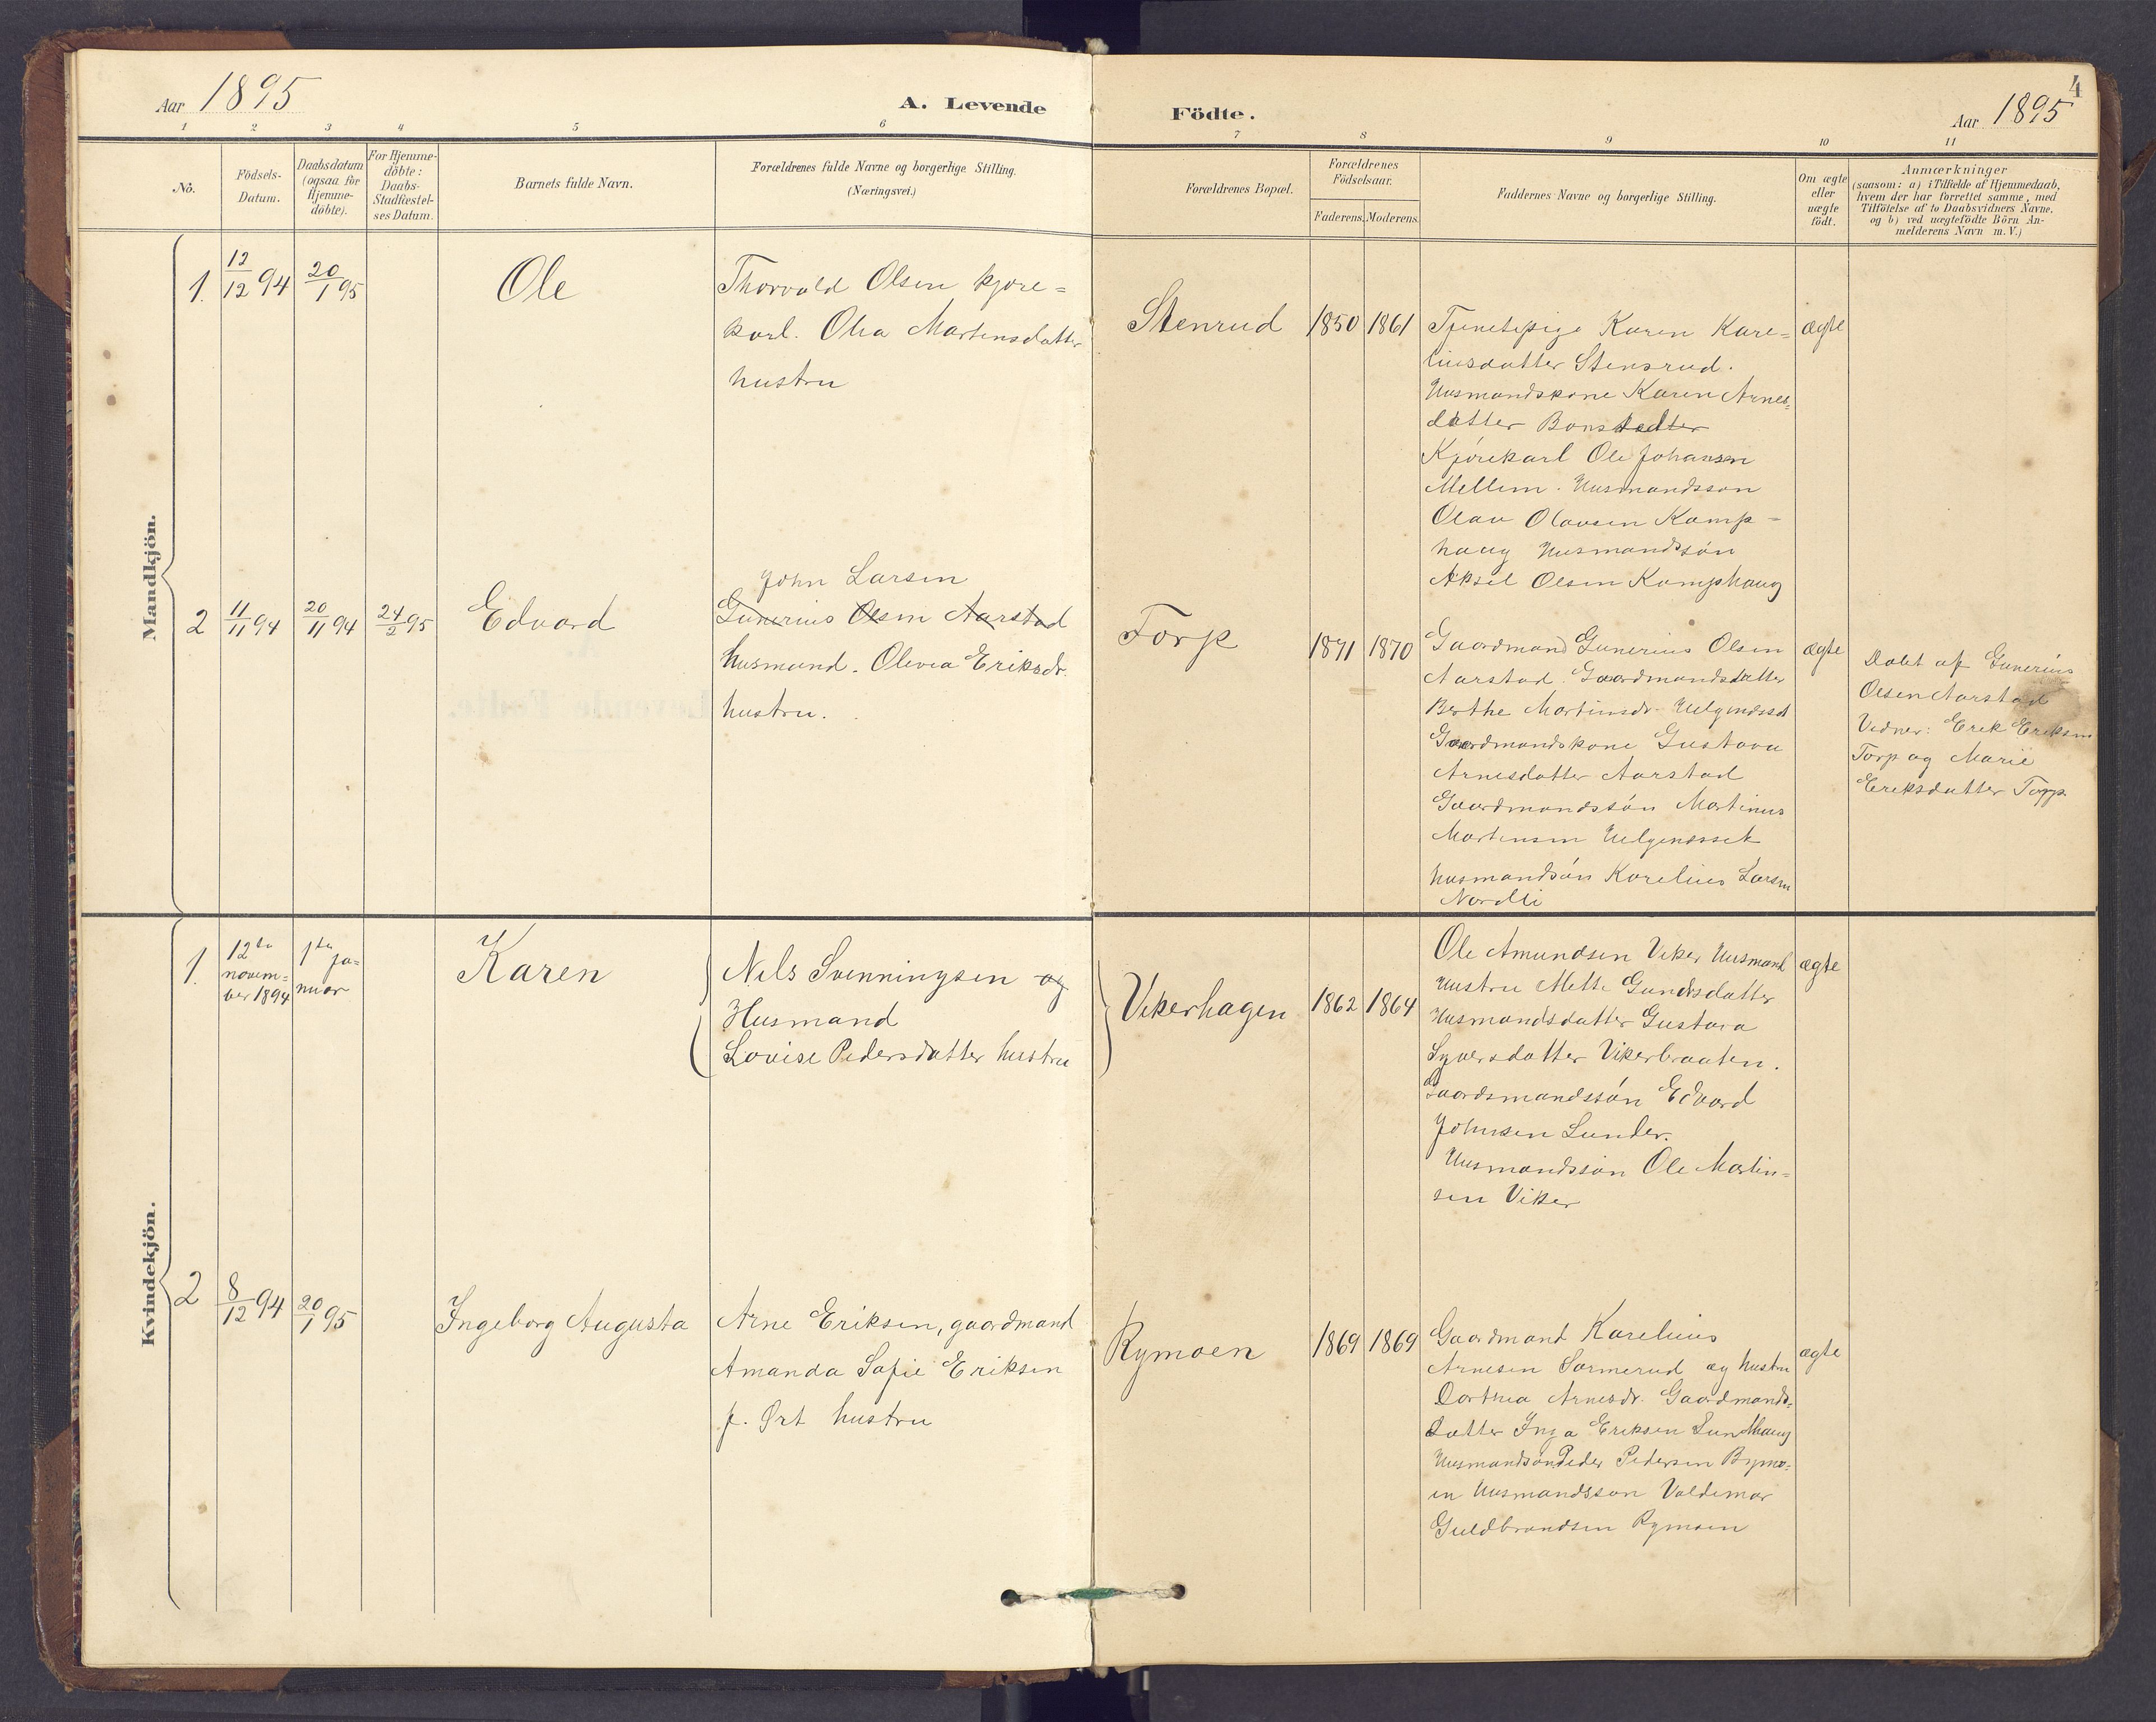 4
Aar 1895
A. Levende
Födte.
Aar 1895
1 2 3 4 5 6 7 8 9 10 11
No.
Födsels-
Datum.
Daabsdatum
(ogsaa for
Hjemme-
döbte).
For Hjemme-
döbte:
Daabs-
Stadfæstel-
ses Datum.
Barnets fulde Navn.
Forældrenes fulde Navne og borgerlige Stilling.
(Næringsvei.)
Forældrenes Bopæl.
Forældrenes
Födselsaar.
Faderens. Moderens.
Faddernes Navne og borgerlige Stilling.
Om ægte
eller
uægte
födt.
Anmærkninger
(saasom: a) i Tilfælde af Hjemmedaab,
hvem der har forrettet samme, med
Tilföielse af to Daabsvidners Navne,
og b) ved uægtefödte Börn An-
melderens Navn m. V.)
Mandkjön.
1.
12/12 94
20/1 95
Ole
Thorvald Olsen kjøre=
karl. Olia Martinsdatter
hustru
Stenrud
1850
1861
Tjenestepige Karen Kare=
liusdatter Stensrud.
Husmandskone Karen Arnes=
datter Bons
Kjørekarl Ole Johansen
Mellem. Husmandssøn
Olav Olavsen Kamp=
haug Husmandssön
Aksel Olsen Kamphaug
ægte
2
11/11 94
20/11 94
24/2 95
Edvard
John Larsen
Gunerius Olsen Aarstad
husmand. Olivia Eriksdr.
hustru.
Torp
1871
1870
Gaardmand Gunerius Olsen
Aarstad. Gaardmandsdatter
Berthe Martinsdr. Helgendset
Gaardmandskone Gustava
Arnesdatter Aarstad
Gaardmandssön Martinus
Martinsen Helgenssset
husmandsön Karelius Larsen
Nordli
ægte
Døbt af Gunerius
Olsen Aarstad
Vidner: Erik Eriksen
Torp og Marie
Eriksdatter Torp.
Kvindekjön.
1.
12te
novem=
ber 1894
1ste ja=
nuar
Karen
Nils Svenningsen og
Husmand
Lovise Pedersdatter hustru
Vikerhagen
1862
1864
Ole Amundsen Viker Husmand
Hustru Mette
Husmandsdatter Gustava
Syversdatter Vikerbraaten.
Gaardsmandssön Edvard
Johnsen Lunder.
Husmandssön Ole Martin=
sen Viker
ægte
2
8/12 94
20/1 95
Ingeborg Augusta
Arne Eriksen, gaardmand
Amanda Sofie Eriksen
f. Ørt hustru
Rymoen
1869
1869
Gaardmand Karelius
Arnesen Sørmerud og hustru
Dorthea Arnesdr. Gaardmands=
datter Inga Eriksen Sundhaug
Husmandsön Peder Pedersen Bymo=
en Husmandssøn Valdemar
Guldbrandsen Rymoen
ægte